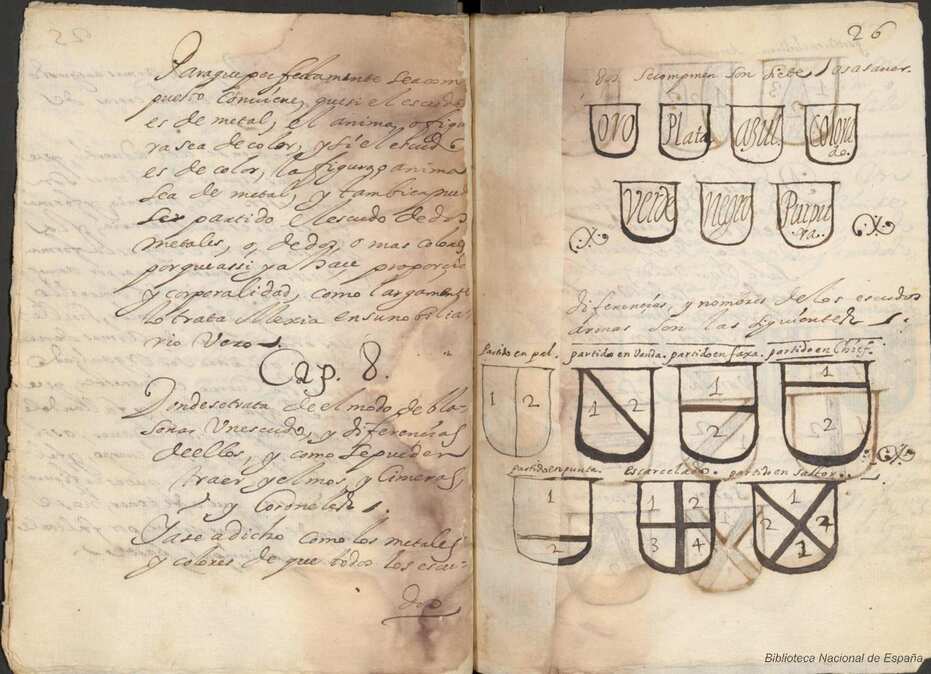 Paraque perfectamente sea com
puesto conviene, que si el escudo
es de metal, el anima, o figu
ra sea de color, y si el escudo
es de color, la figura, o anima
sea de metal, y tambien pue
ser partido el escudo de dos
metales, o, de dos, o mas colores
porque assi ya hace proporcio
y corporalidad, como largamente
lo trata Mexia en su nobilia
rio Vero.
Cap. 8.
Donde se trata de el modo de bla
sonar Un escudo, y diferencias
de ellos, y como se pueden
traer yelmos, y Cimeras,
y Coroneles.
Ya se a dicho como los metales
y colores de que todos los escu-
dos
26
dos se componen son siete, asaver.
oro Plata asul. Colora
do.
Verde negro Purpu
ra.
diferencias, y nomvres de los escudos
de armas son las siguientes.
Partido en pal. partido en Vanda. partido en faxa. partido en Chief.
1 2 1 2 1 2 1 2
partido en punta. escarcelado. partido en Sastor.
1 2 1 2 3 4 1 2 2 1
Biblioteca Nacional de España